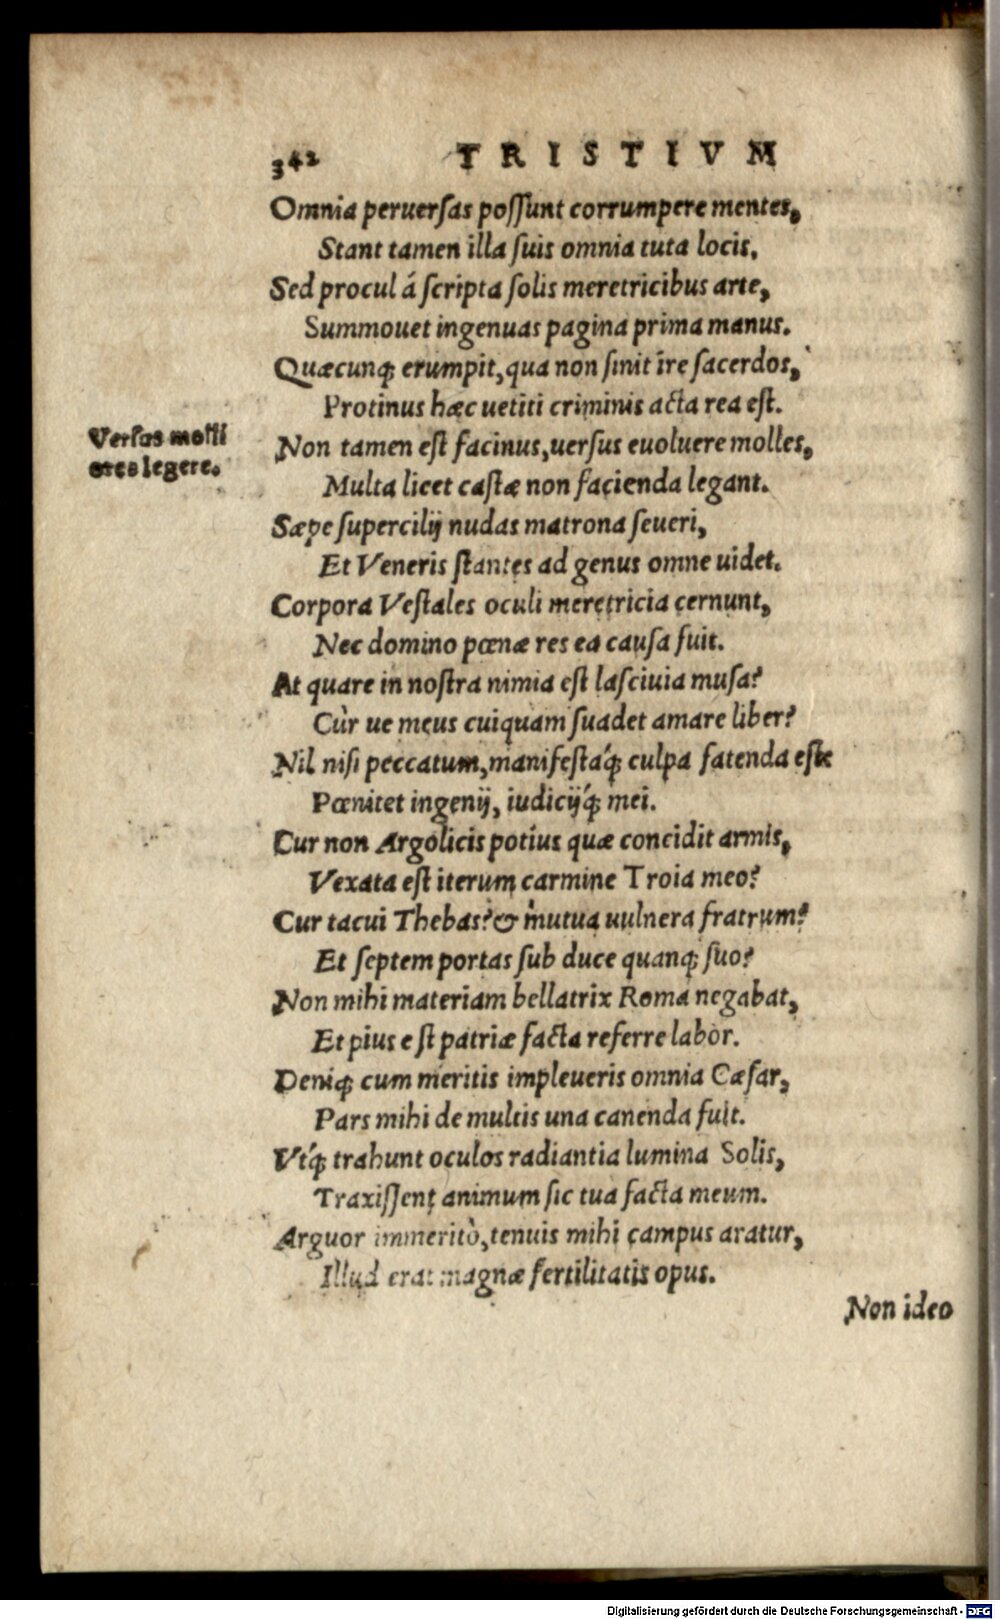 342 TRISTIVM
Omnia peruerſas poſſunt corrumpere mentes,
Stant tamen illa ſuis omnia tuta locis.
Sed procul á ſcripta ſolis meretricibus arte,
Summouet ingenuas pagina prima manus.
Quæcunq; erumpit, qua non ſinit ire ſacerdos,
Protinus hæc uetiti criminis acta rea eſt.
Verſus molli
ores legere.
Non tamen eſt facinus, uerſus euoluere molles,
Multa licet caſtæ non facienda legant.
Sæpe ſupercilij nudas matrona ſeueri,
Et Veneris ſtantes ad genus omne uidet.
Corpora Veſtales oculi meretricia cernunt,
Nec domino pœnæ res ea cauſa fuit.
At quare in noſtra nimia eſt laſciuia muſa?
Cùr ue meus cuiquam ſuadet amare liber?
Nil niſi peccatum, manifeſtáq; culpa fatenda eſt
Pœnitet ingenij, iudicijq́; mei.
Cur non Argolicis potius quæ concidit armis,
Vexata eſt iterum carmine Troia meo?
Cur tacui Thebas? & mutua uulnera fratrum?
Et ſeptem portas ſub duce quanq; ſuo?
Non mihi materiam bellatrix Roma negabat,
Et pius eſt patriæ facta referre labor.
Deniq; cum meritis impleueris omnia Cæſar,
Pars mihi de multis una canenda fuit.
Vtq́; trahunt oculos radiantia lumina Solis,
Traxiſſent animum ſic tua facta meum.
Arguor immeritò, tenuis mihi campus aratur,
Illud erat magnæ fertilitatis opus.
Non ideo
Digitalisierung gefördert durch die Deutsche Forschungsgemeinschaft - DFG